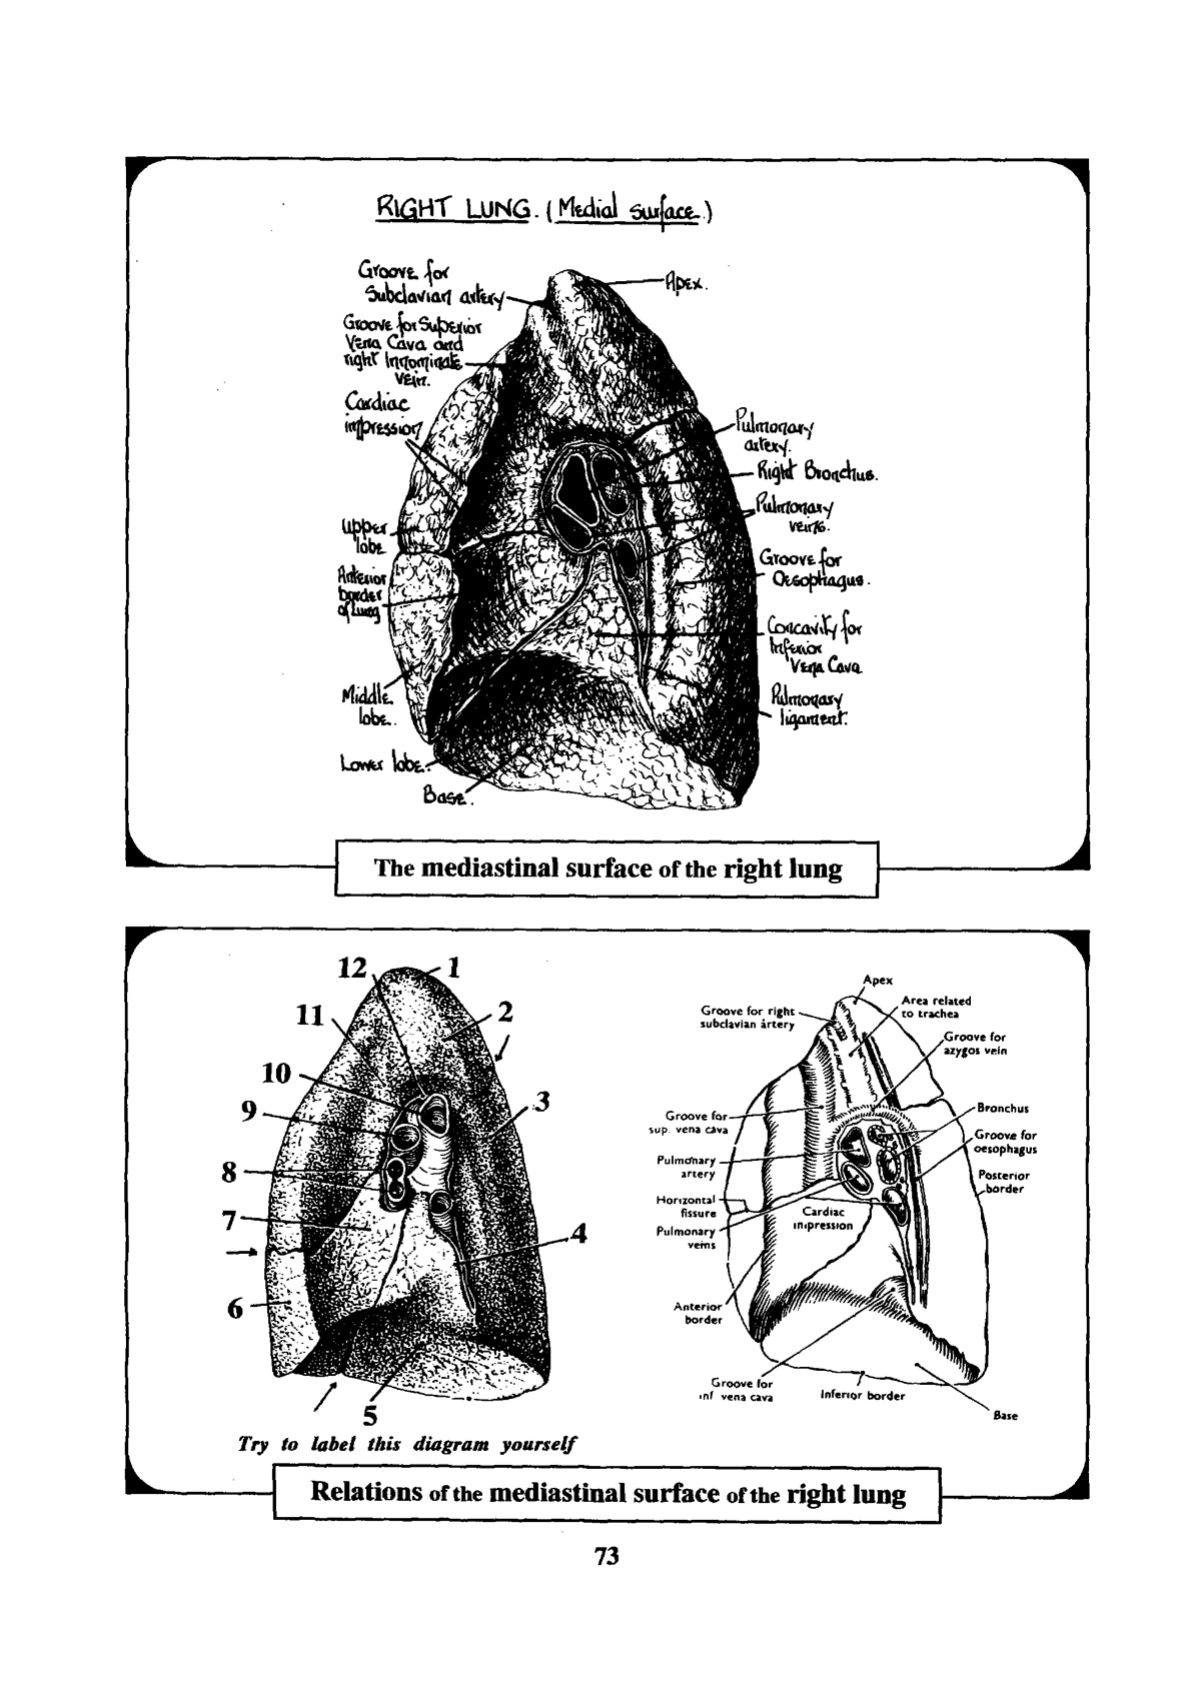 RIGHT LUNG. (Medial surface.)
Groove for
Subclavian artery
Apex.
Groove for Superior
Vena Cava and
right Innominate
vein.
Cardiac
impression
Pulmonary
artery.
Right Bronchus.
Pulmonary
veins.
upper
lobe
Groove for
Oesophagus.
Anterior
border
of lung
Concavity for
Inferior
Vena Cava
Middle
lobe.
Pulmonary
ligament.
Lower lobe.
Base.
The mediastinal surface of the right lung
12
1
11
2
10
9
3
8
7
4
6
5
Try to label this diagram yourself
Apex
Groove for right
subclavian artery
Area related
to trachea
Groove for
azygos vein
Groove for
sup. vena cava
Bronchus
Groove for
oesophagus
Pulmonary
artery
Posterior
border
Horizontal
fissure
Cardiac
impression
Pulmonary
veins
Anterior
border
Groove for
inf vena cava
Inferior border
Base
Relations of the mediastinal surface of the right lung
73